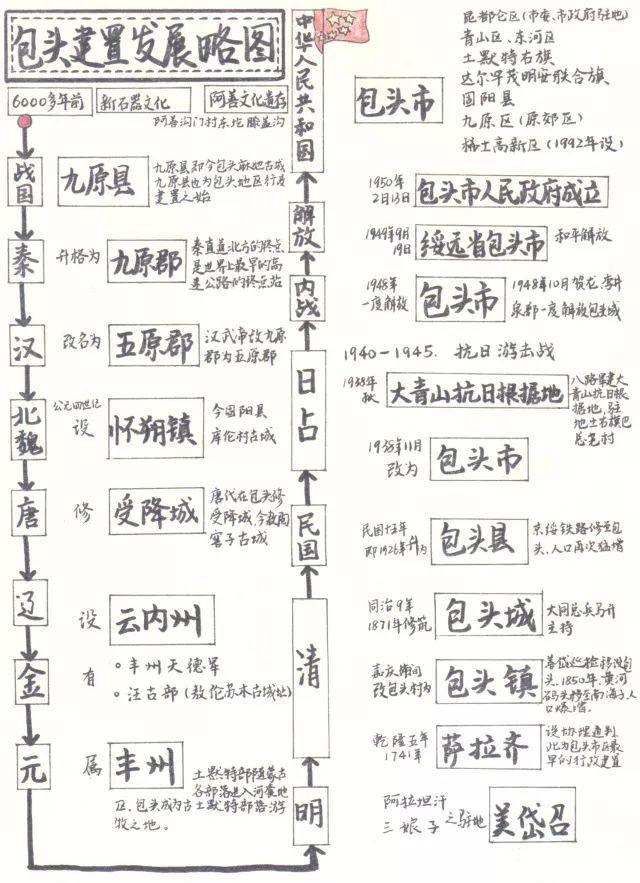 包头建置发展略图
6000多年前
新石器文化
阿善文化遗存
阿善沟门村东坨
战国
九原县
九原县即今包头
九原县也为包头地区行政
建置之始
秦
升格为
九原郡
秦直道北方的终点
是世界上最早的高
速公路的终点站
汉
改名为
五原郡
汉武帝改九原
郡为五原郡
北魏
公元四世纪
设
怀朔镇
今固阳县
库伦村古城
唐
修
受降城
唐代在包头修
受降城,今敖陶
窑子古城
辽
设
云内州
金
有
丰州天德军
汪古部(敖伦苏木古城址)
元
属
丰州
土默特部随蒙古
各部落进入河套地
区、包头成为古土默特部落游
牧之地。
中华人民共和国
解放
内战
日占
民国
清
明
包头市
昆都仑区(市委、市政府驻地)
青山区、东河区
土默特右旗
达尔罕茂明安联合旗
固阳县
九原区(原郊区)
稀土高新区(1992年设)
1950年
2月13日
包头市人民政府成立
1949年9月
19日
绥远省包头市
和平解放
1948年
一度解放
包头市
1948年10月贺龙、李井
泉部一度解放包头城
1940-1945. 抗日游击战
1938年
秋
大青山抗日根据地
八路军建大
青山抗日根
据地,驻
地土右旗巴
总尧村
1938年11月
改为
包头市
民国十五年
即1926年升为
包头县
京绥铁路修至包
头、人口再次猛增
同治9年
1871年修筑
包头城
大同总兵马升
主持
嘉庆年间
改包头村为
包头镇
善岱巡检移设包
头、1850年、黄河
码头移至南海子人
口爆增。
乾隆五年
1741年
萨拉齐
设协理通判
此为包头市区最
早的行政建置
阿拉坦汗
三娘子
之驻地
美岱召